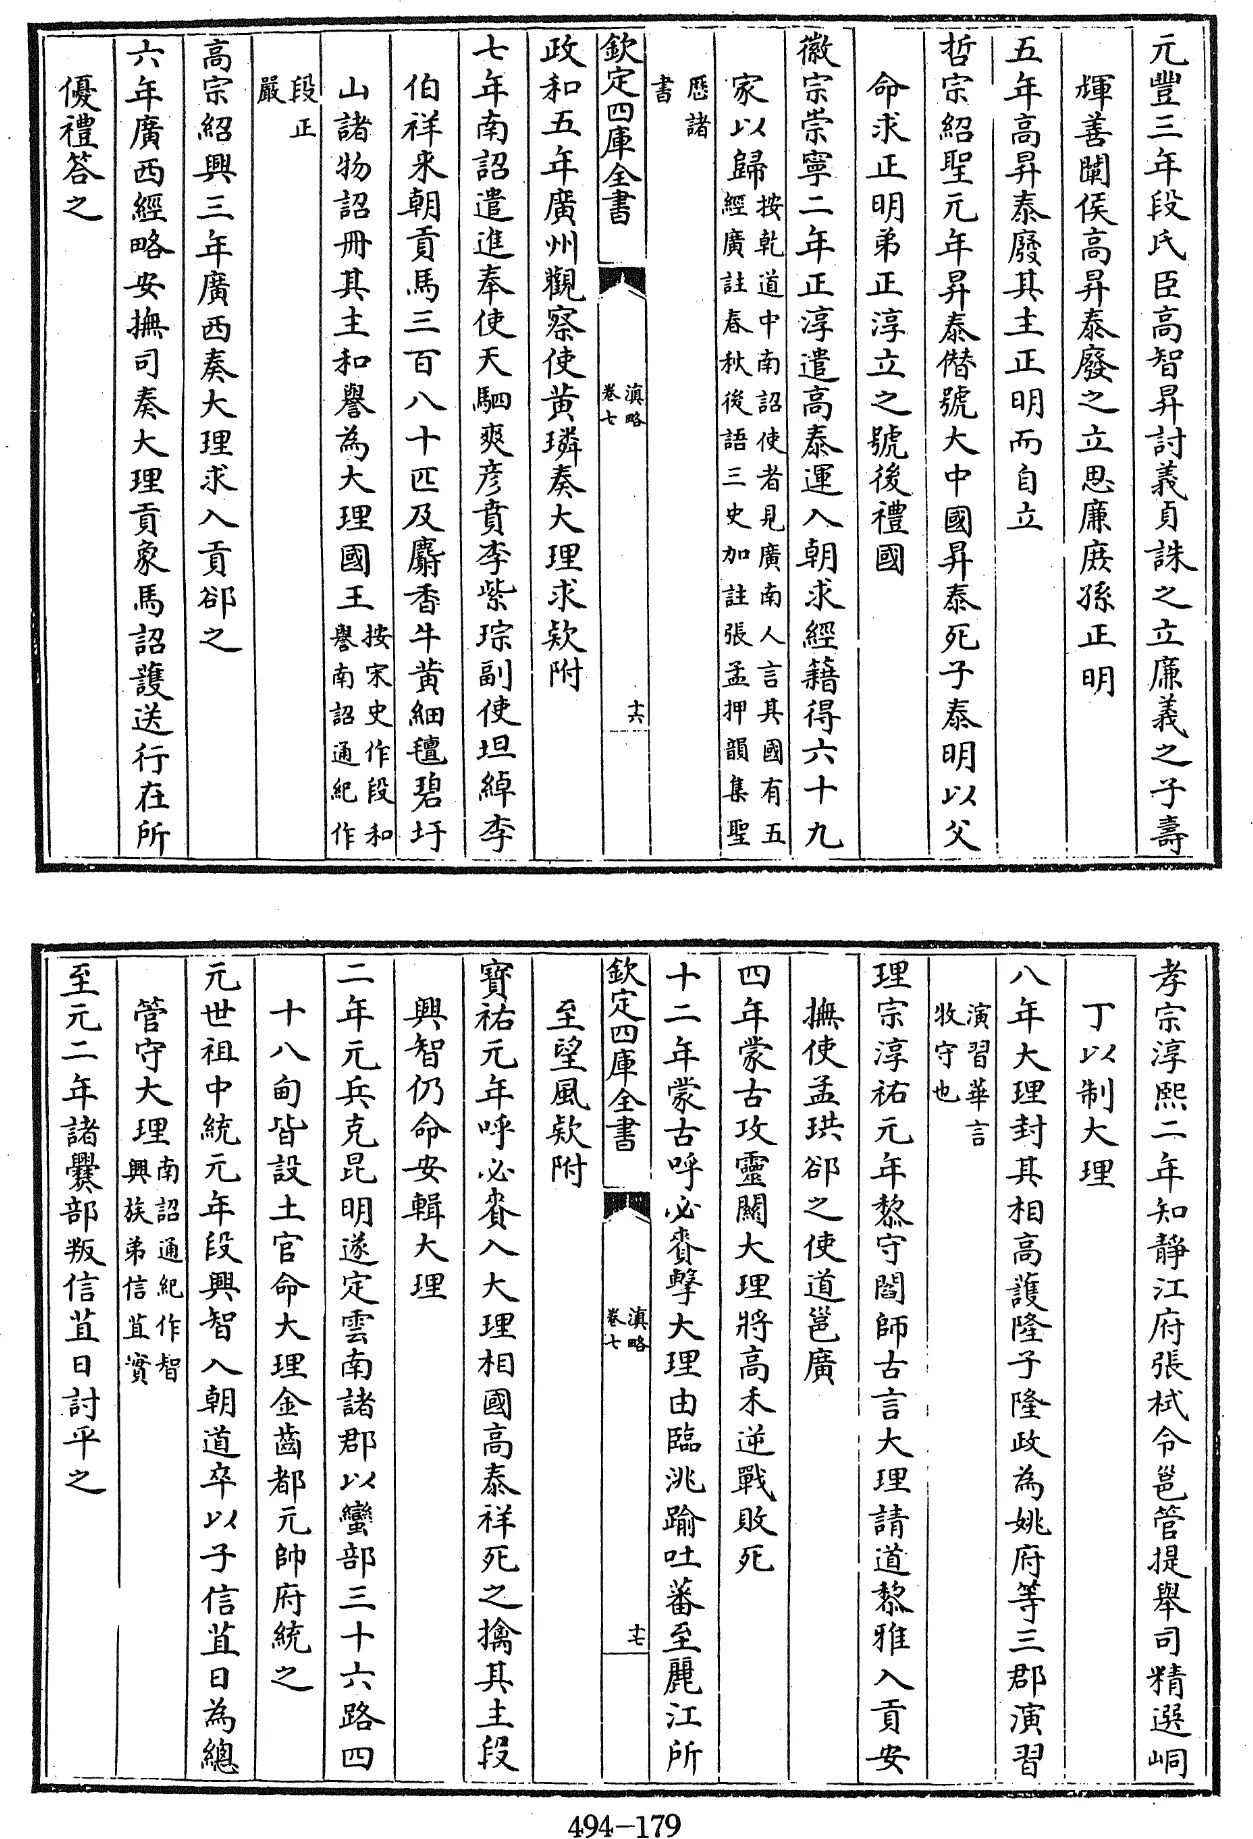 元豐三年段氏臣高智昇討義貞誅之立廉義之子壽
輝善闡侯高昇泰廢之立思廉庻孫正明
五年高昇泰廢其主正明而自立
哲宗紹聖元年昇泰僭號大中國昇泰死子泰明以父
命求正明弟正淳立之號後禮國
徽宗崇寧二年正淳遣高泰運入朝求經籍得六十九
家以歸按乾道中南詔使者見廣南人言其國有五
經廣註春秋後語三史加註張孟押韻集聖
歷諸
書
欽定四庫全書
滇略
卷七
十六
政和五年廣州觀察使黃璘奏大理求欵附
七年南詔遣進奉使天駟爽彦賁李紫琮副使坦綽李
伯祥来朝貢馬三百八十匹及麝香牛黃細氊碧玗
山諸物詔冊其主和譽為大理國王按宋史作段和
譽南詔通紀作
段正
嚴
高宗紹興三年廣西奏大理求入貢郤之
六年廣西經略安撫司奏大理貢象馬詔護送行在所
優禮答之
孝宗淳熙二年知靜江府張栻令邕管提舉司精選峒
丁以制大理
八年大理封其相高護隆子隆政為姚府等三郡演習
演習華言
牧守也
理宗淳祐元年黎守閻師古言大理請道黎雅入貢安
撫使孟珙郤之使道邕廣
四年蒙古攻靈關大理將高禾逆戰敗死
十二年蒙古呼必賚擊大理由臨洮踰吐蕃至麗江所
欽定四庫全書
滇略
卷七
十七
至望風欵附
寶祐元年呼必賚入大理相國高泰祥死之擒其主段
興智仍命安輯大理
二年元兵克昆明遂定雲南諸郡以蠻部三十六路四
十八甸皆設土官命大理金齒都元帥府統之
元世祖中統元年段興智入朝道卒以子信苴日為總
管守大理南詔通紀作智
興族弟信苴實
至元二年諸㸑部叛信苴日討平之
494-179